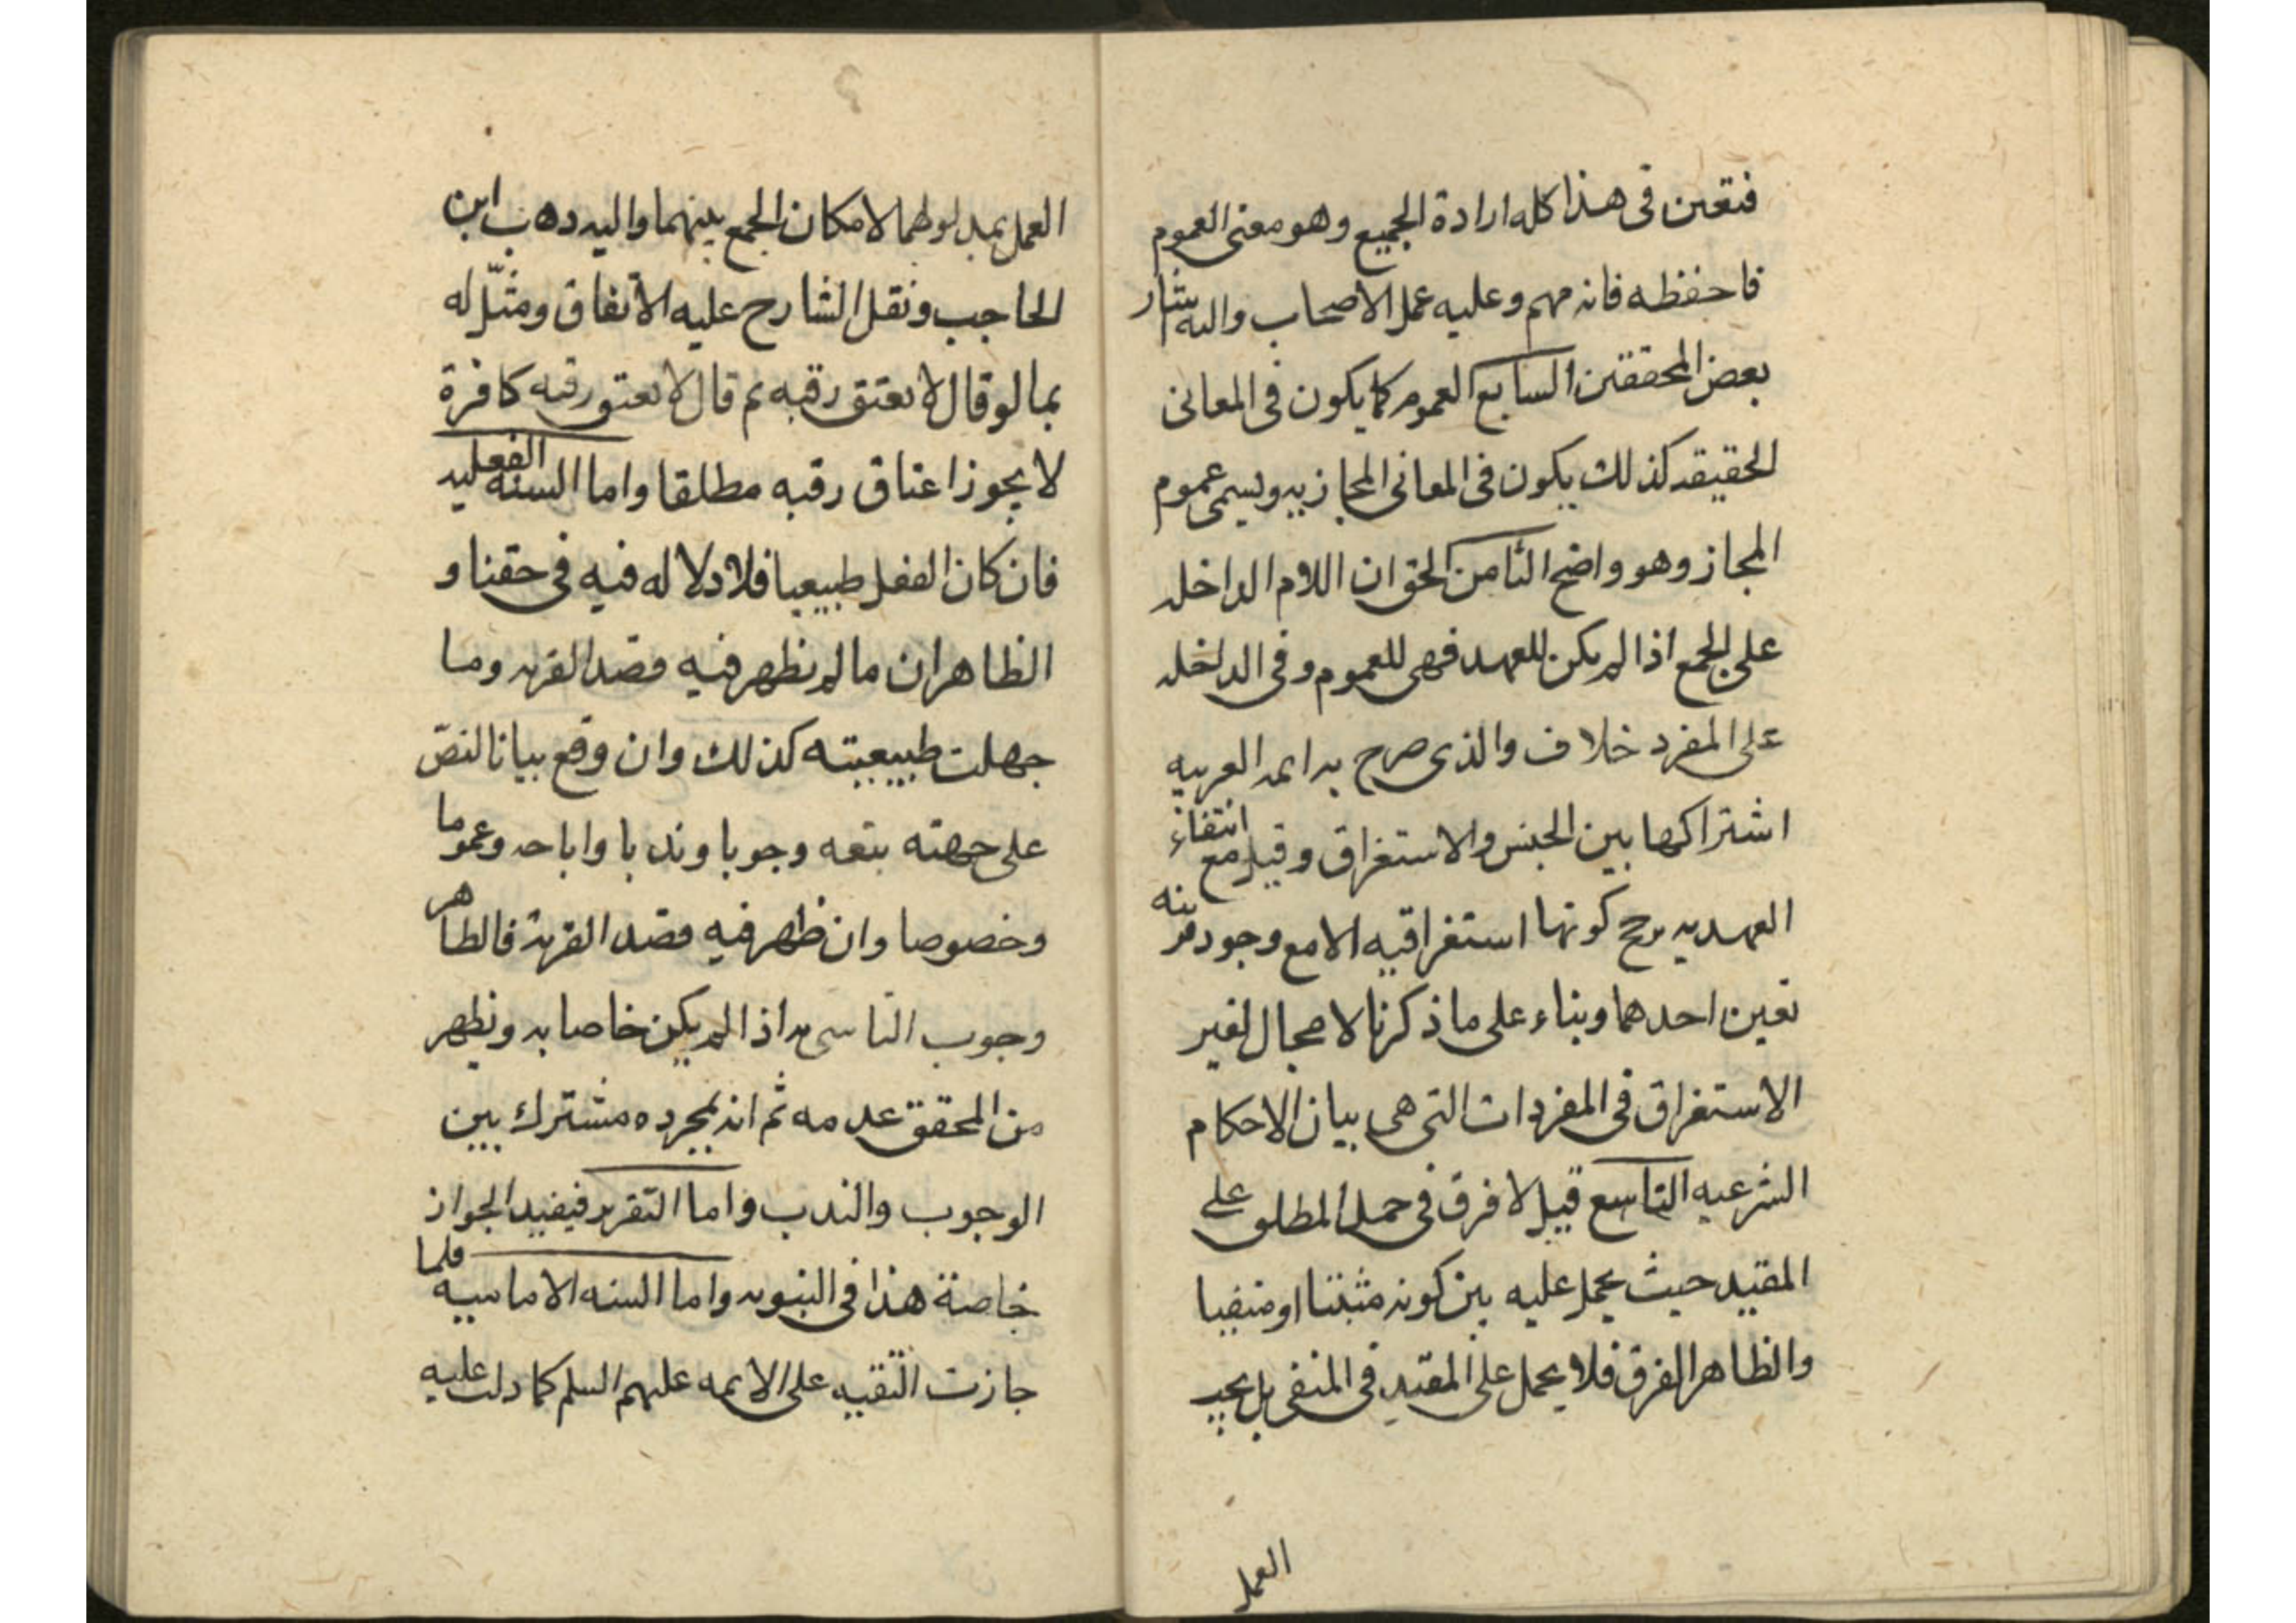 فتعين فى هذا كله ارادة الجميع وهو معنى العموم
فاحفظه فانه مهم وعليه عمل الاصحاب واليه اشار
بعض المحققين السابع العموم كما يكون فى المعانى
الحقيقه كذلك يكون فى المعانى المجازيه ويسمى عموم
المجاز وهو واضح الثامن الحق ان اللام الداخله
على الجمع اذا لم يكن للعهد فهى للعموم وفى الداخله
على المفرد خلاف والذى صرح به ائمه العربيه
اشتراكها بين الجنس والاستغراق وقيل مع انتفاء
العهديه يرجح كونها استغراقيه الا مع وجود قرينه
تعين احدهما وبناء على ما ذكرنا لا مجال لغير
الاستغراق فى المفردات التى هى بيان الاحكام
الشرعيه التاسع قيل لا فرق فى حمل المطلق على
المقيد حيث يحمل عليه بين كونه مثبتا او منفيا
والظاهر الفرق فلا يحمل على المقيد فى المنفى بل يجب
العمل
العمل بمدلولهما لامكان الجمع بينهما واليه ذهب ابن
الحاجب ونقل الشارح عليه الاتفاق ومثّل له
بما لو قال لا تعتق رقبه ثم قال لا تعتق رقبه كافرة
لا يجوز اعتاق رقبه مطلقا واما السنه الفعليه
فان كان الفعل طبيعيا فلا دلاله فيه فى حقنا و
الظاهر ان ما لم يظهر فيه قصد القربه وما
جهلت طبيعيته كذلك وان وقع بيانا لنصّ
على جهته يتبعه وجوبا وندبا واباحه وعموما
وخصوصا وان ظهر فيه قصد القربة فالظاهر
وجوب التاسى به اذا لم يكن خاصا به ويظهر
من المحقق عدمه ثم انه بمجرده مشترك بين
الوجوب والندب واما التقرير فيفيد الجواز
خاصة هذا فى النبويه واما السنه الاماميه فلما
جازت التقيه على الائمه عليهم السلم كما دلت عليه